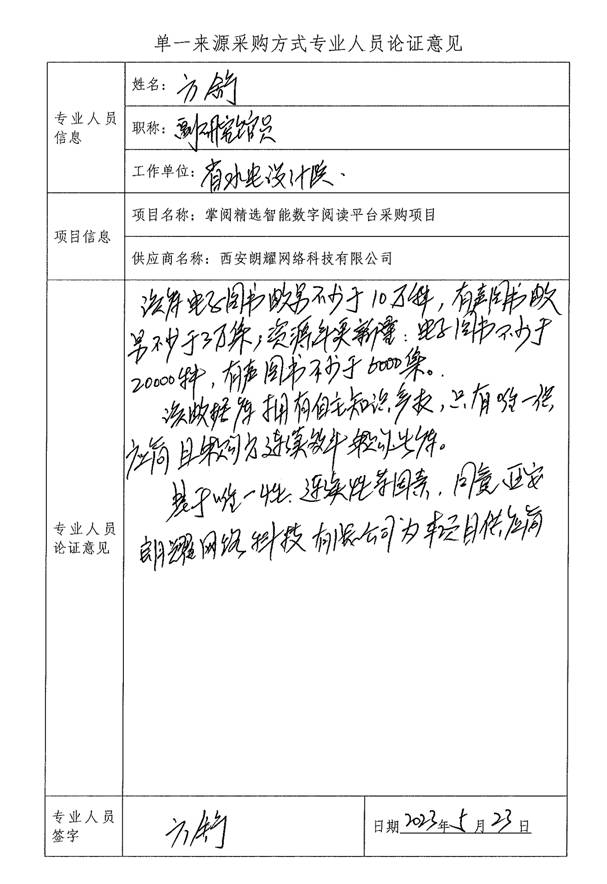 单一来源采购方式专业人员论证意见
专业人员
信息
姓名：方舒
职称：副研究馆员
工作单位：省水电设计院.
项目信息
项目名称：掌阅精选智能数字阅读平台采购项目
供应商名称：西安朗耀网络科技有限公司
专业人员
论证意见
该库电子图书数量不少于10万种，有声图书数
量不少于3万集；资源年更新量：电子图书不少于
20000种，有声图书不少于6000集。
该数据库拥有自主知识产权，只有唯一供
应商且我司方连续数年
基于唯一性、连续性等因素，同意西安
朗耀网络科技有限公司为本项目供应商
专业人员
签字
方舒
日期 2023年5月23日